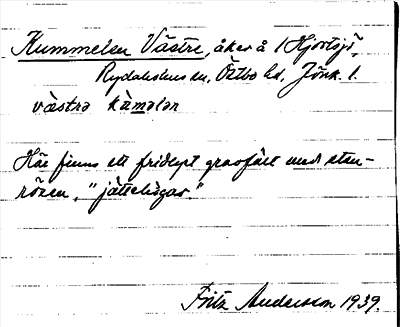 Kummelen Västre, åker å 1 Hjortsjö,
Rydaholms sn, Östbo hd, Jönk. l.
västrə kàməlan
Här finns ett fridlyst gravfält med sten-
rösen, "jättehögar."
Fritz Andersson 1939.